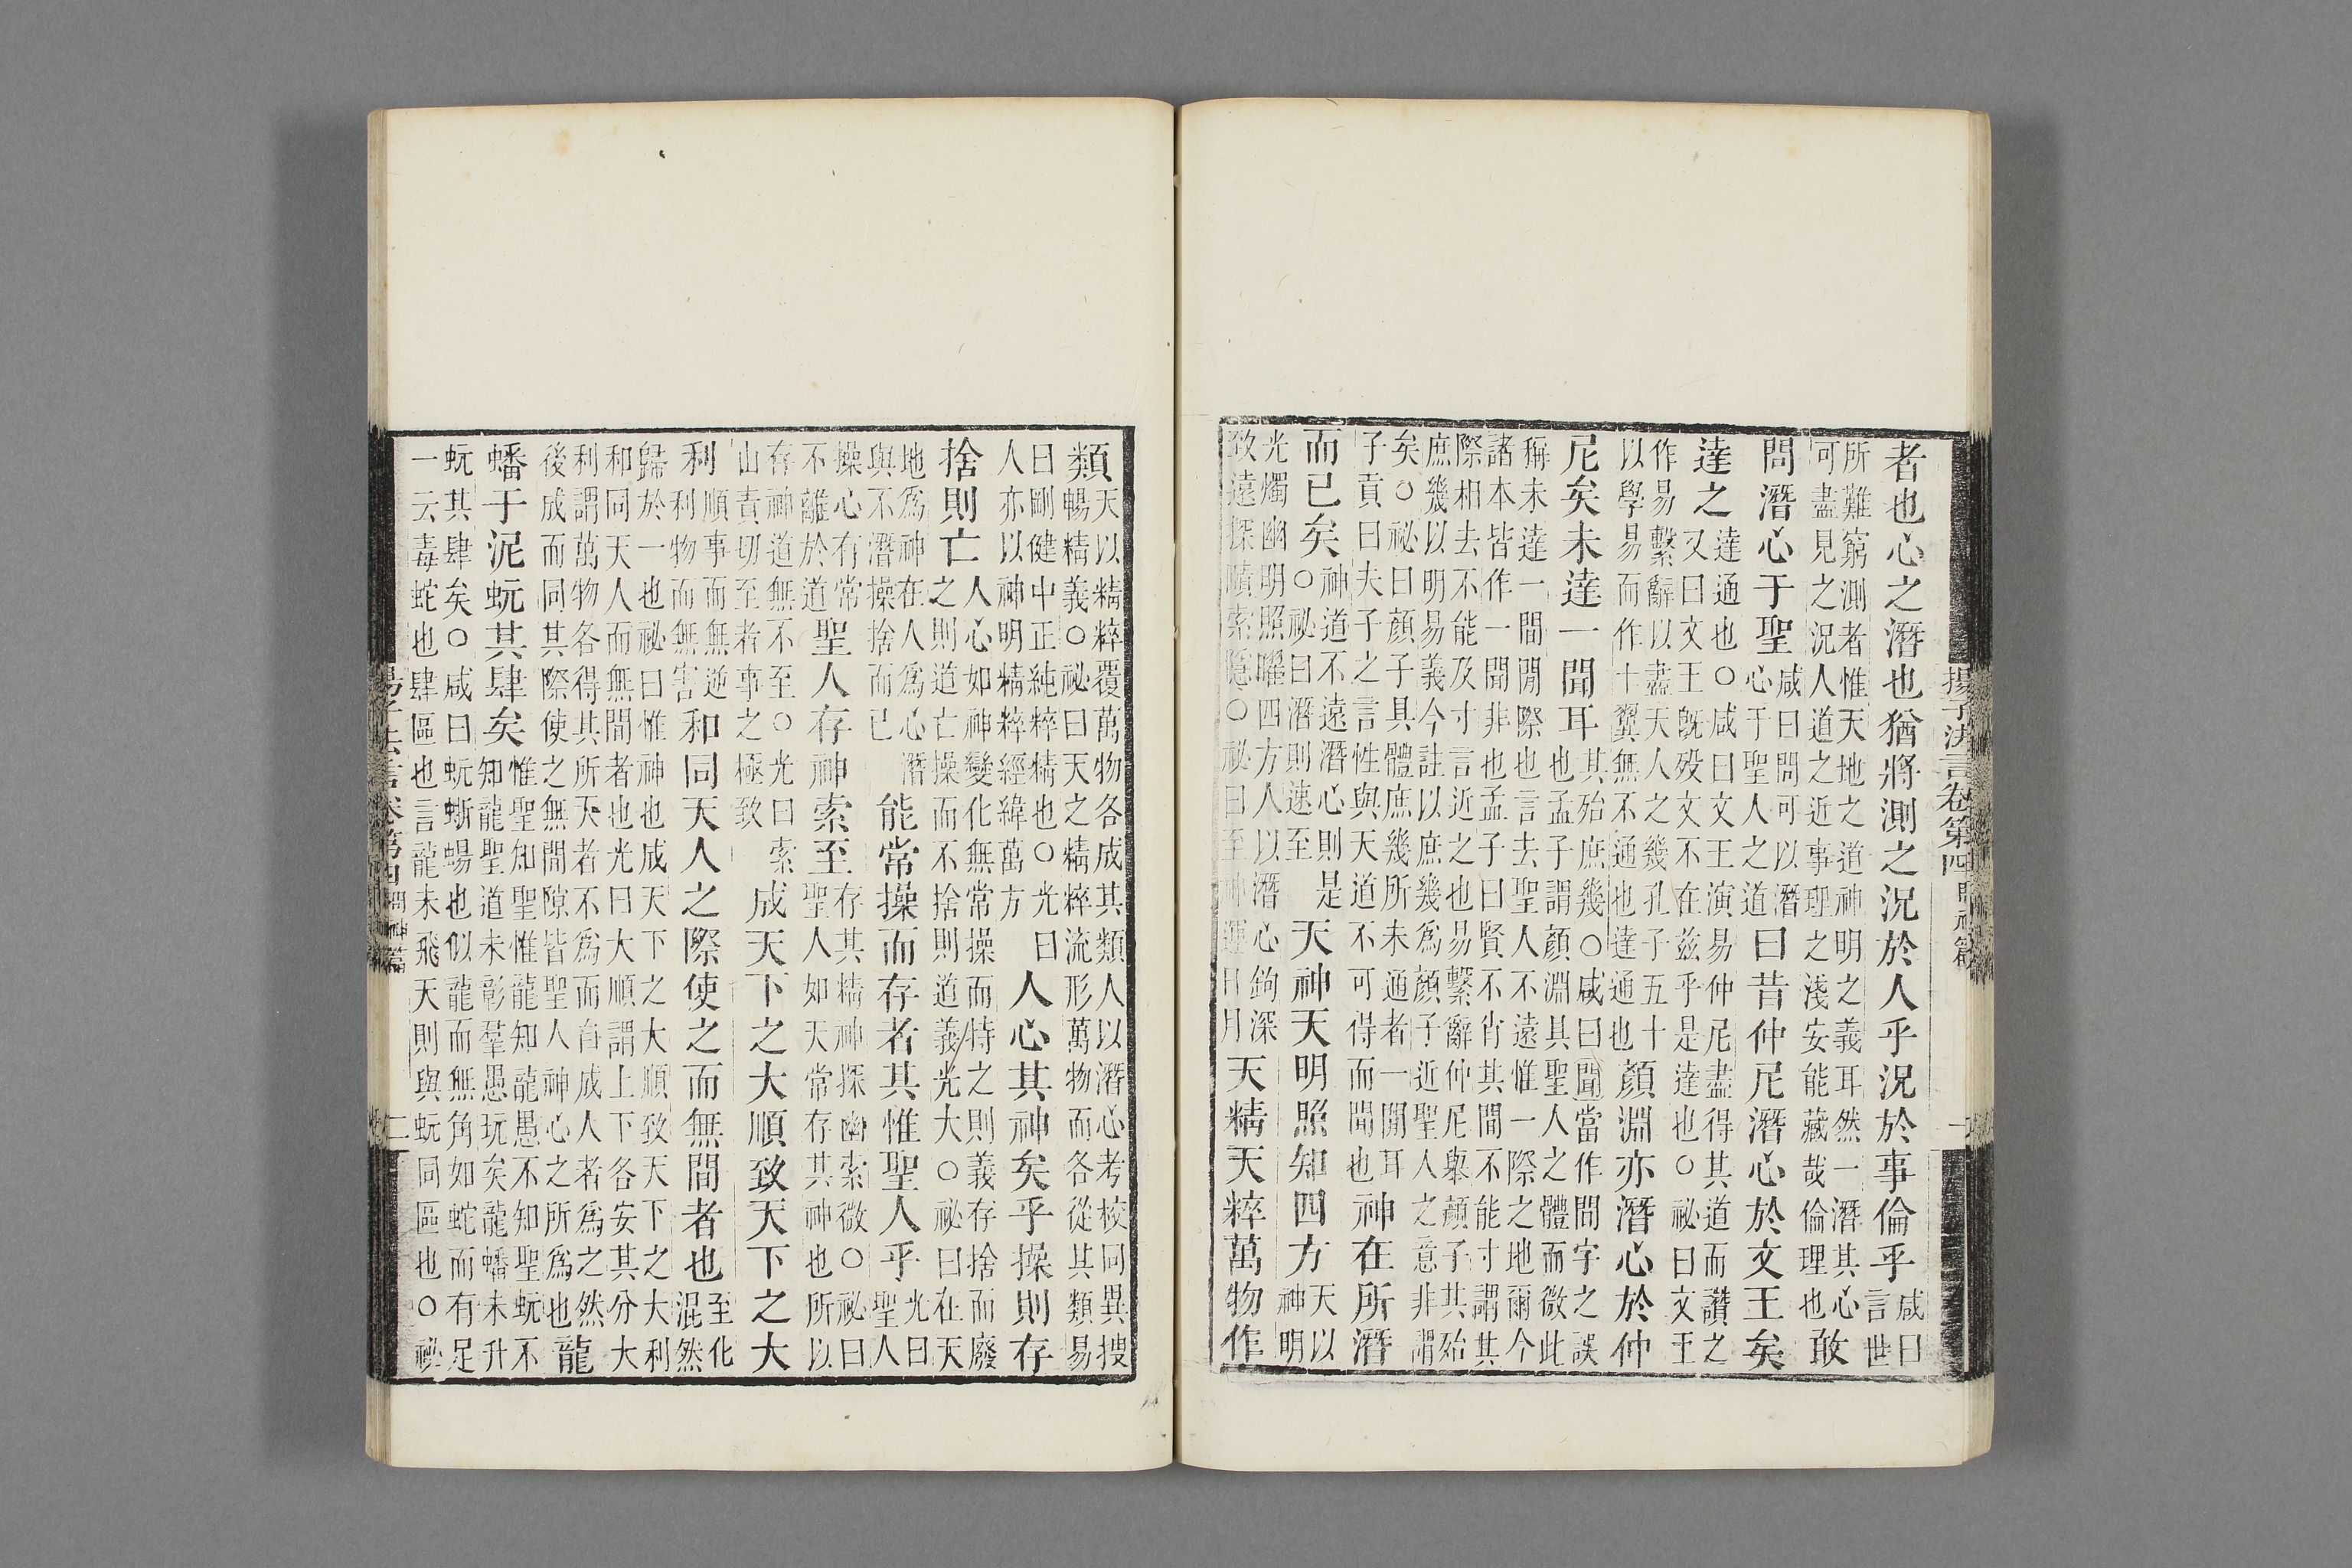 者也心之潛也猶將測之況於人乎況於事倫乎咸曰言世
所難窮測者惟天地之道神明之義耳然一潛其心敢
可盡見之況人道之近事理之淺安能藏哉倫理也
問潛心于聖咸曰問可以潛心于聖人之道曰昔仲尼潛心於文王矣
達之達通也○咸曰文王演易仲尼盡得其道而讚之又曰文王旣歿文不在茲乎是達也○祕曰文王
作易繫辭以盡天人之幾孔子五十以學易而作十翼無不通也達通也顏淵亦潛心於仲
尼矣未達一聞耳其殆庶幾○咸曰聞當作間字之誤也孟子謂顏淵具聖人之體而微此
稱未達一間間際也言去聖人不遠惟一際之地爾今
諸本皆作一聞非也孟子曰賢不肖其間不能寸謂其
際相去不能及寸言近之也易繫辭仲尼舉顏子其殆
庶幾以明易義今註以庶幾爲顏子近聖人之意非謂
矣○祕曰顏子具體庶幾所未通者一間耳神在所潛
子貢曰夫子之言性與天道不可得而聞也
而已矣神道不遠潛心則是○祕曰潛則速至天神天明照知四方天以神明
光燭幽明照曜四方人以潛心鉤深天精天粹萬物作
致遠探賾索隱○祕曰至神運日月
揚子法言卷第四 問神篇
一
類天以精粹覆萬物各成其類人以潛心考校同異搜
暢精義○祕曰天之精粹流形萬物而各從其類易
曰剛健中正純粹精也○光曰人心其神矣乎操則存
人亦以神明精粹經緯萬方
捨則亡人心如神變化無常操而持之則義存捨而廢之則道亡操而不捨則道義光大○祕曰在天
地爲神在人爲心潛能常操而存者其惟聖人乎光曰聖人
與不潛操捨而已
操心有常不離於道聖人存神索至存其精神探幽索微○祕曰聖人如天常存其神也所以
存神道無不至○光曰索成天下之大順致天下之大
山責切至者事之極致
利順事而無逆利物而無害和同天人之際使之而無間者也至化混然
歸於一也祕曰惟神也成天下之大順致天下之大利
和同天人而無間者也光曰大順謂上下各安其分大
利謂萬物各得其所天者不爲而自成人者爲之然龍
後成而同其際使之無間隙皆聖人神心之所爲也
蟠于泥蚖其肆矣惟聖知聖惟龍知龍愚不知聖蚖不知龍聖道未彰羣愚玩矣龍蟠未升
蚖其肆矣○咸曰蚖蜥蜴也似龍而無角如蛇而有足
一云毒蛇也肆區也言龍未飛天則與蚖同區也○祕
揚子法言卷第四 問神篇
二